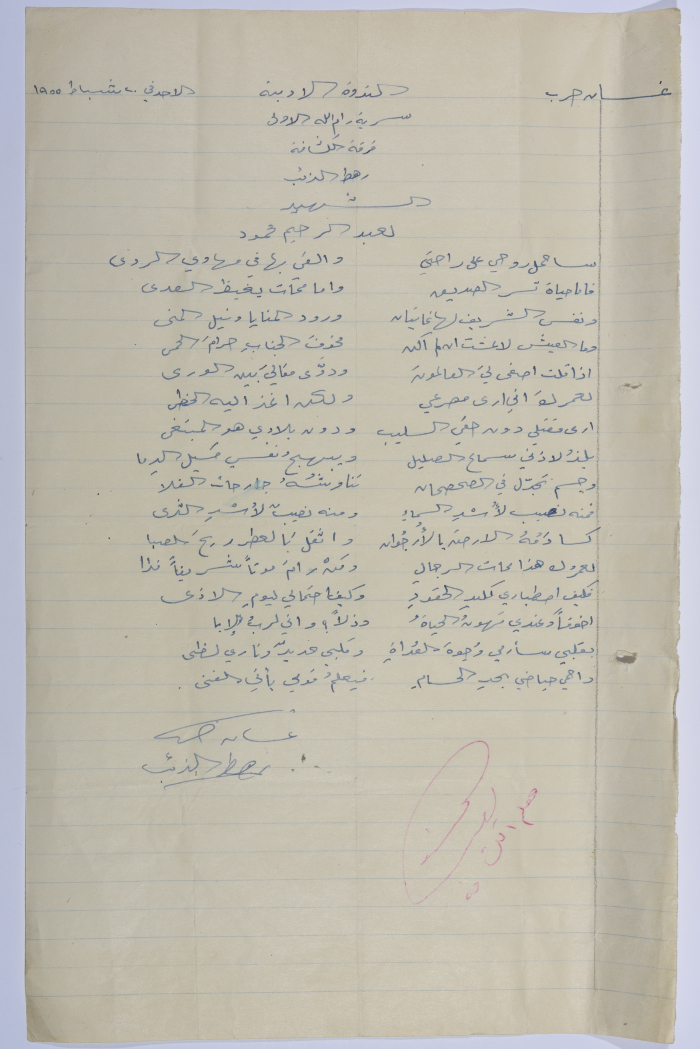 غسان حرب الندوة الادبية الاحد في ٢٠ شباط ١٩٥٥
سرية رام الله الاولى
فرقة الكشافة
رهط الذئب
الشهيد
لعبد الرحيم محمود
سأحمل روحي على راحتي والقي بها في مهاوي الردى
فاما حياة تسر الصديق واما ممات يغيظ العدى
ونفس الشريف لها غايتان ورود المنايا ونيل المنى
وما العيش لا عشت ان لم اكن مخوف الجناب حرام الحمى
اذا قلت اصغى لي العالمون ودوّى مقالي بين الورى
لعمرك اني ارى مصرعي ولكن اغذ اليه الخطى
ارى مقتلي دون حقي السليب ودون بلادي هو المبتغى
يلذ لاذني سماع الصليل ويبهج نفسي مسيل الدما
وجسم تجدّل في الصحصحان تناوشتهُ جارحات الفلا
فمنه نصيب لأسْدِ السماءِ ومنه نصيب لأسْدِ الثرى
كسا دمهُ الارض بالأرجوان واثقل بالعطر ريح الصبا
لعمرك هذا ممات الرجال ومَنْ رام موتاً شريفاً فذا
فكيف اصطباري لكيد الحقودِ وكيف احتمالي ليوم الاذى
اخوفاً وعندي تهونُ الحياةُ وذلاً واني لرب الإبا
بقلبي سأرمي وجوه العداةِ وقلبي حديدٌ وناري لظى
واحمي حياضي بحد الحسامِ فيعلمُ قومي بأني الفتى .
غسان حرب
رهط الذئب
معلم